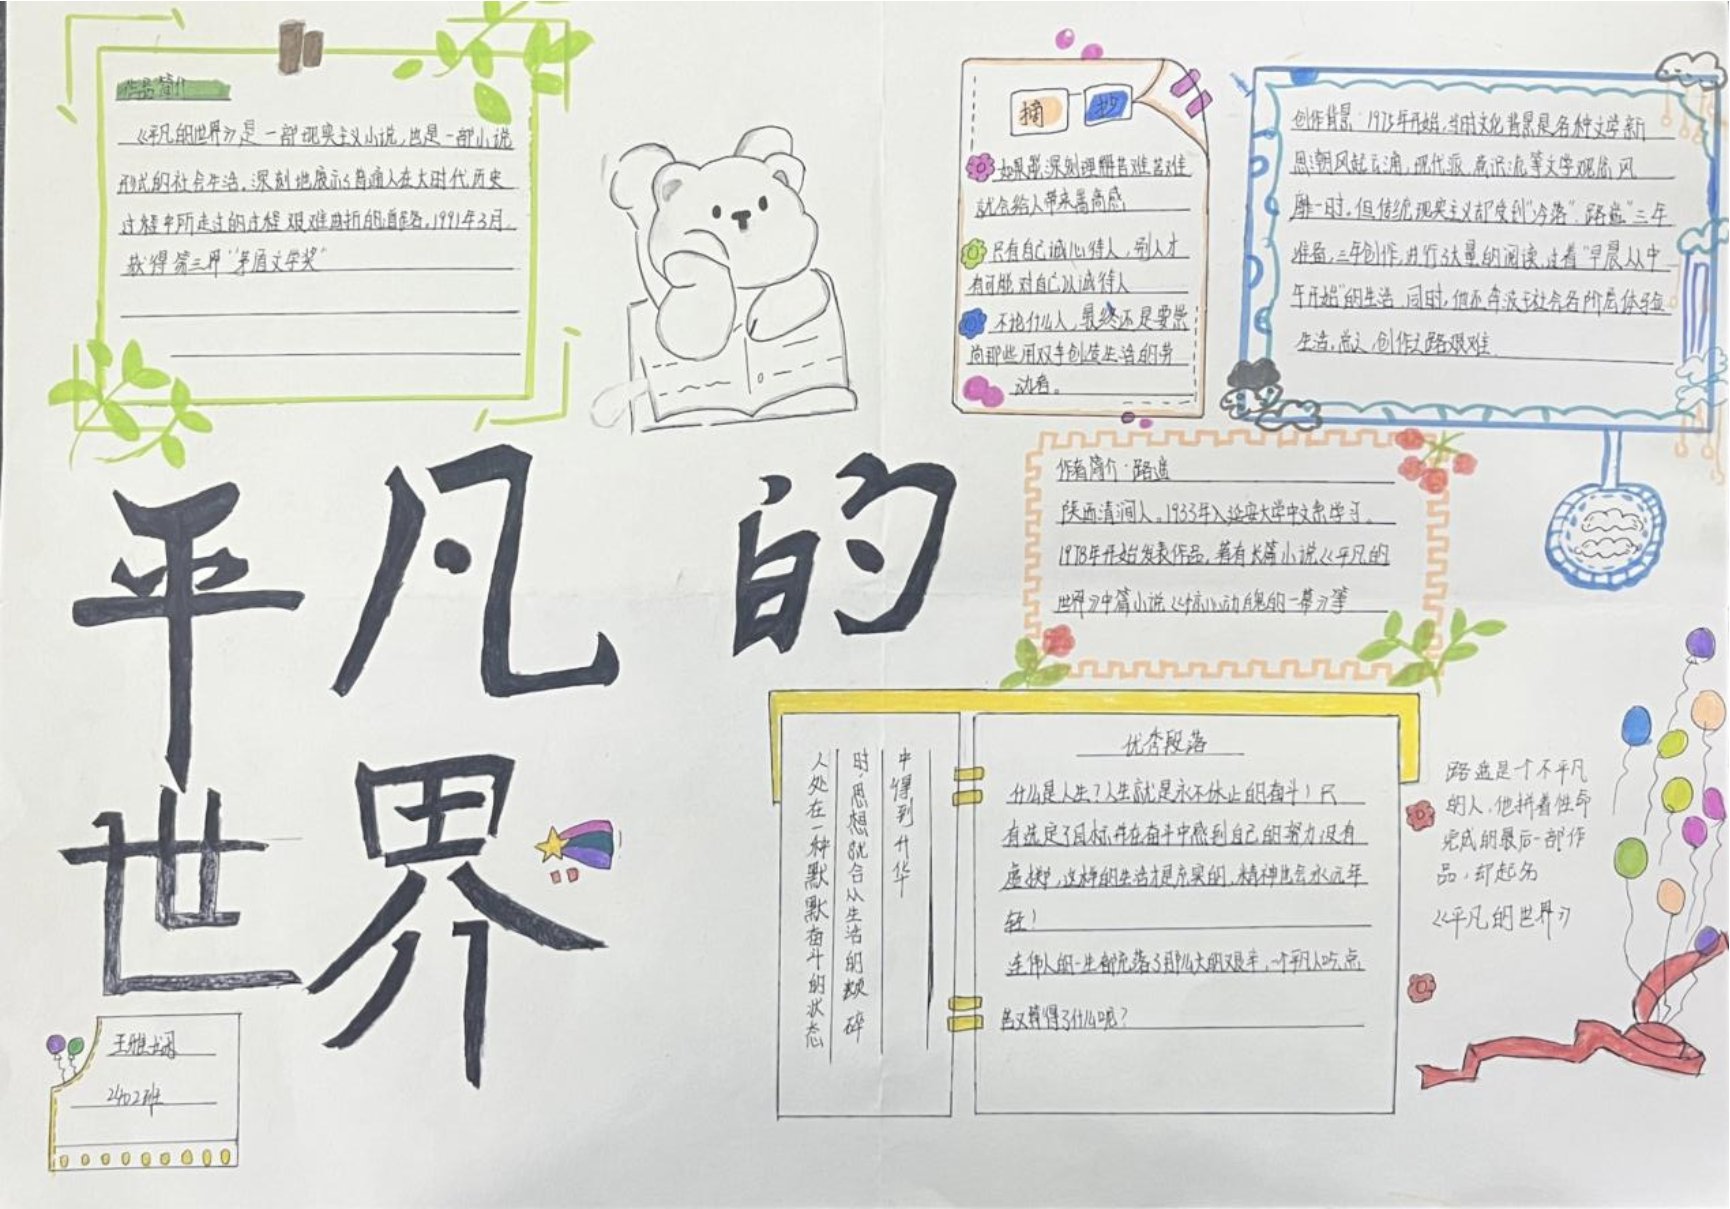 作品简介
《平凡的世界》是一部现实主义小说,也是一部小说
形式的社会生活。深刻地展示了普通人在大时代历史
过程中所走过的过程艰难曲折的道路。1991年3月
获得第三界“茅盾文学奖”
摘抄
如果能深刻理解苦难苦难
就会给人带来崇高感
只有自己诚心待人,别人才
有可能对自己以诚待人
不论什么人,最终还是要崇
尚那些用双手创造生活的劳
动者。
创作背景:1975年开始,当时文化背景是各种文学新
思潮风起云涌,现代派、意识流等文学观念风
靡一时。但传统现实主义却受到“冷落”。路遥“三年
准备,三年创作,进行了大量的阅读,过着“早晨从中
午开始”的生活,同时,他还奔波于社会各阶层体验
生活,总之,创作之路艰难
作者简介:路遥
陕西清涧人。1933年入延安大学中文系学习。
1978年开始发表作品,著有长篇小说《平凡的
世界》中篇小说《惊心动魄的一幕》等
平凡的
世界
人处在一种默默奋斗的状态
时,思想就会从生活的琐碎
中得到升华
优秀段落
什么是人生?人生就是永不休止的奋斗!只
有选定了目标并在奋斗中感到自己的努力没有
虚掷,这样的生活才是充实的,精神也会永远年
轻!
连伟人的一生都充满了那么大的艰辛,一个平凡人吃点
苦又算得了什么呢?
路遥是个不平凡
的人,他拼着性命
完成的最后一部作
品,却起名
《平凡的世界》
2402班